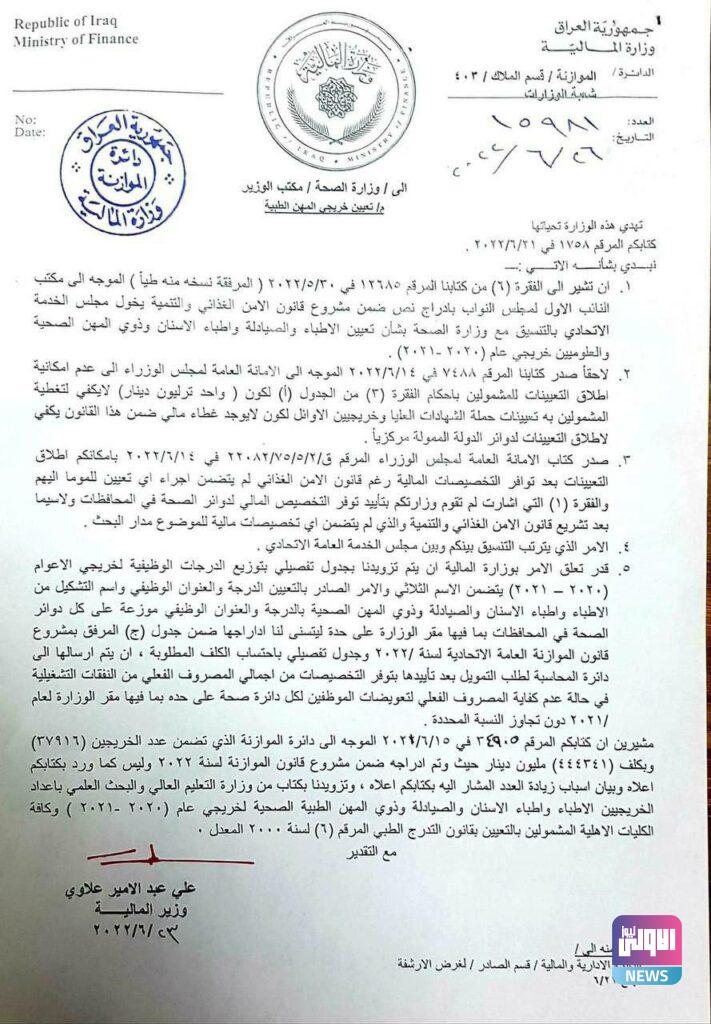 Republic of Iraq
Ministry of Finance
No:
Date:
جمهورية العراق
وزارة المالية
الدائرة / الموازنة / قسم الملاك / ٤٠٣
شعبة الوزارات
العدد: ١٥٩٨١
التاريخ: ٢٠٢٢/٦/٢٦
وزارة المالية
REPUBLIC OF IRAQ MINISTRY OF FINANCE
جمهورية العراق
دائرة
الموازنة
وزارة المالية
الى / وزارة الصحة / مكتب الوزير
م/ تعيين خريجي المهن الطبية
تهدي هذه الوزارة تحياتها
كتابكم المرقم ١٧٥٨ في ٢٠٢٢/٦/٢١ .
نبدي بشأنه الاتي :ـــ
١. ان تشير الى الفقرة (٦) من كتابنا المرقم ١٢٦٨٥ في ٢٠٢٢/٥/٣٠ ( المرفقة نسخه منه طياً ) الموجه الى مكتب
النائب الاول لمجلس النواب بادراج نص ضمن مشروع قانون الامن الغذائي والتنمية يخول مجلس الخدمة
الاتحادي بالتنسيق مع وزارة الصحة بشأن تعيين الاطباء والصيادلة واطباء الاسنان وذوي المهن الصحية
والعلوميين خريجي عام (٢٠٢٠ -٢٠٢١) .
٢. لاحقاً صدر كتابنا المرقم ٧٤٨٨ في ٢٠٢٢/٦/١٤ الموجه الى الامانة العامة لمجلس الوزراء الى عدم امكانية
اطلاق التعيينات للمشمولين باحكام الفقرة (٣) من الجدول (أ) لكون ( واحد ترليون دينار) لايكفي لتغطية
المشمولين به تعيينات حملة الشهادات العليا وخريجيين الاوائل لكون لايوجد غطاء مالي ضمن هذا القانون يكفي
لاطلاق التعيينات لدوائر الدولة الممولة مركزياً .
٣. صدر كتاب الامانة العامة لمجلس الوزراء المرقم ق/٢٢٠٨٢/٧٥/٥/٢ في ٢٠٢٢/٦/١٤ بامكانكم اطلاق
التعيينات بعد توافر التخصيصات المالية رغم قانون الامن الغذائي لم يتضمن اجراء اي تعيين للموما اليهم
والفقرة (١) التي اشارت لم تقوم وزارتكم بتأييد توفر التخصيص المالي لدوائر الصحة في المحافظات ولاسيما
بعد تشريع قانون الامن الغذائي والتنمية والذي لم يتضمن اي تخصيصات مالية للموضوع مدار البحث .
٤. الامر الذي يترتب التنسيق بينكم وبين مجلس الخدمة العامة الاتحادي .
٥. قدر تعلق الامر بوزارة المالية ان يتم تزويدنا بجدول تفصيلي بتوزيع الدرجات الوظيفية لخريجي الاعوام
(٢٠٢٠ – ٢٠٢١) يتضمن الاسم الثلاثي والامر الصادر بالتعيين الدرجة والعنوان الوظيفي واسم التشكيل من
الاطباء واطباء الاسنان والصيادلة وذوي المهن الصحية بالدرجة والعنوان الوظيفي موزعة على كل دوائر
الصحة في المحافظات بما فيها مقر الوزارة على حدة ليتسنى لنا اداراجها ضمن جدول (ج) المرفق بمشروع
قانون الموازنة العامة الاتحادية لسنة /٢٠٢٢ وجدول تفصيلي باحتساب الكلف المطلوبة ، ان يتم ارسالها الى
دائرة المحاسبة لطلب التمويل بعد تأييدها بتوفر التخصيصات من اجمالي المصروف الفعلي من النفقات التشغيلية
في حالة عدم كفاية المصروف الفعلي لتعويضات الموظفين لكل دائرة صحة على حده بما فيها مقر الوزارة لعام
/٢٠٢١ دون تجاوز النسبة المحددة .
مشيرين ان كتابكم المرقم ٣٤٩٠٥ في ٢٠٢٢/٦/١٥ الموجه الى دائرة الموازنة الذي تضمن عدد الخريجين (٣٧٩١٦)
وبكلف (٤٤٤٣٤١) مليون دينار حيث وتم ادراجه ضمن مشروع قانون الموازنة لسنة ٢٠٢٢ وليس كما ورد بكتابكم
اعلاه وبيان اسباب زيادة العدد المشار اليه بكتابكم اعلاه ، وتزويدنا بكتاب من وزارة التعليم العالي والبحث العلمي باعداد
الخريجيين الاطباء واطباء الاسنان والصيادلة وذوي المهن الطبية الصحية لخريجي عام (٢٠٢٠ -٢٠٢١ ) وكافة
الكليات الاهلية المشمولين بالتعيين بقانون التدرج الطبي المرقم (٦) لسنة ٢٠٠٠ المعدل .
مع التقدير
علي عبد الامير علاوي
وزير المالية
٢٠٢٢/٦/٢٣
منه الى /
الادارية والمالية / قسم الصادر / لغرض الارشفة
الاولى نيوز
NEWS